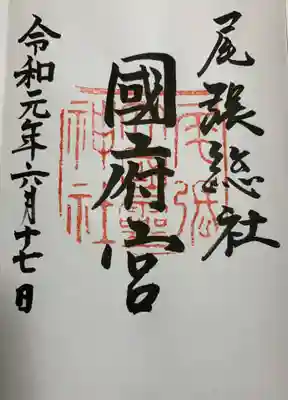 尾張総社
國府宮
令和元年六月十七日